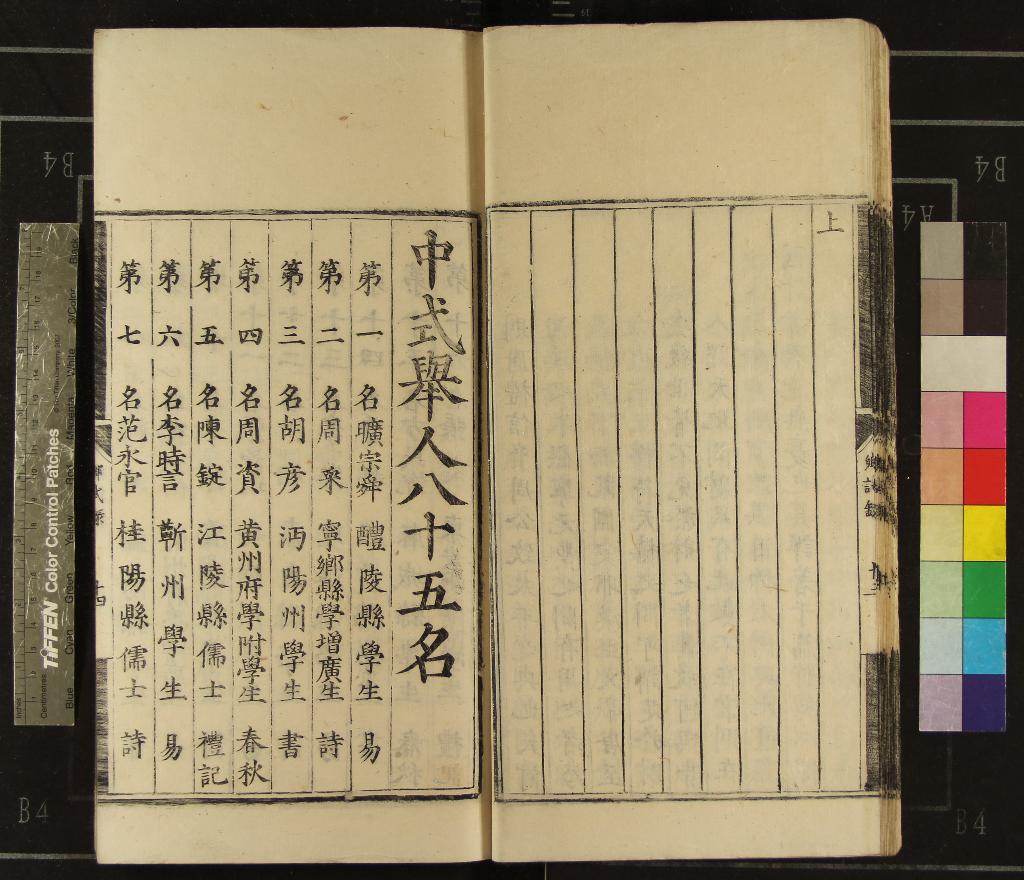 上
中式舉人八十五名
第一名曠宗舜 醴陵縣學生 易
第二名周寀 寧鄉縣學增廣生 詩
第三名胡彦 沔陽州學生 書
第四名周資 黄州府學附學生 春秋
第五名陳錠 江陵縣儒士 禮記
第六名李時言 蘄州學生 易
第七名范永官 桂陽縣儒士 詩
TIFFEN Color Control Patches
Blue Cyan Green Yellow Red Magenta White 3/Color Black
Inches
Centimetres
B4
B4
A4
B4
B4